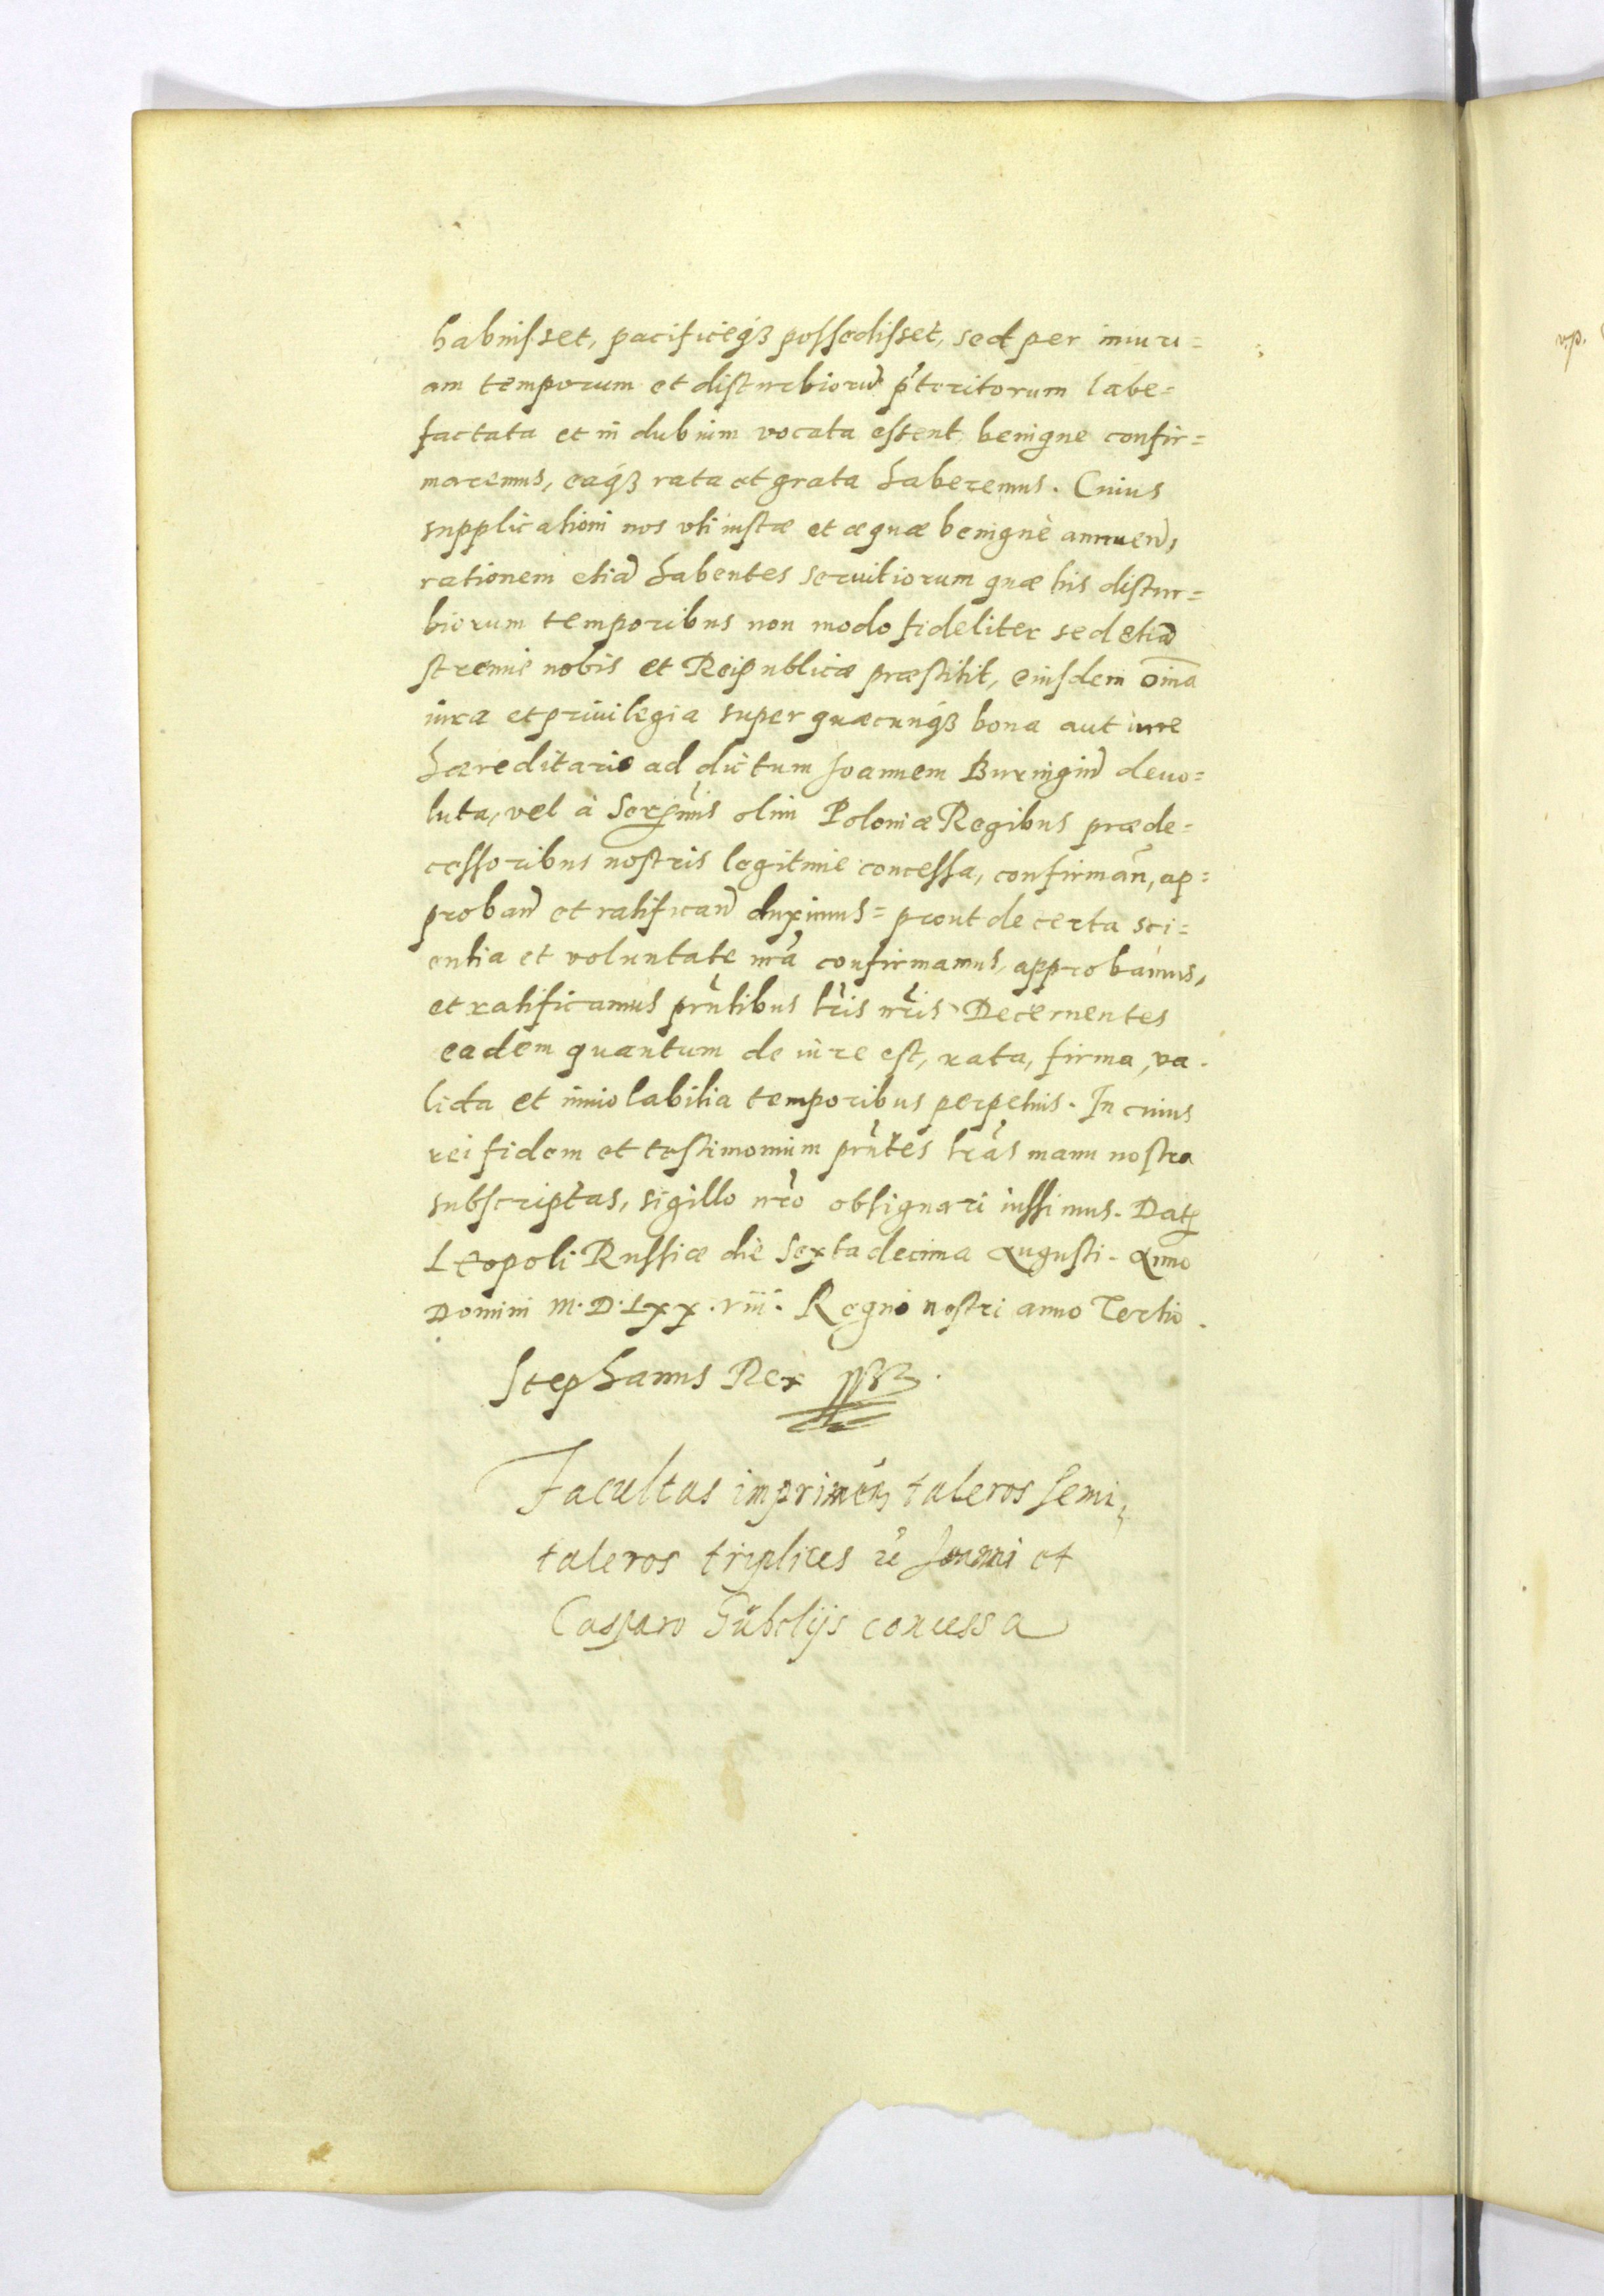 habuisset, pacificeqꝫ possedisset, sed per iniuri=
am temporum et disturbiorũ p'teritorum labe=
factata et in dubium vocata essent, benigne confir=
maremus, eaqꝫ rata et grata haberemus. Cuius
supplicationi nos vti iustæ et æquæ benignè annuen,
rationem etiã habentes seruitiorum quæ his distur=
biorum temporibus non modo fideliter sed etiã
strenue nobis et Reipublicæ præstitit, eiusdem oĩa
iura et priuilegia super quæcunqꝫ bona aut iure
hæreditario ad dictum Joannem Buringium deuo=
luta, vel à Serꝑmis olim Poloniæ Regibus præde=
cessoribus nostris legitime concessa, confirman, ap=
proban et ratifican duximus= prout de certa sci=
entia et voluntate nrã confirmamus, approbamus,
et ratificamus prñtibus lris nris Decernentes
eadem quantum de iure est, rata, firma, va.
lida et inuiolabilia temporibus perpetuis. In cuius
rei fidem et testimonium prñtes lrãs manu nostra
subscriptas, sigillo nrõ obsignari iussimus. Datꝫ
Leopoli Russiæ die Sexta decima Augusti. Anno
Domini M.D.Lxx.viii. Regni nostri anno Tertio.
Stephanus Rex
Facultas imprimen taleros semi,
taleros triplices Joanni et
Casparo Gubelijs concessa
vp.